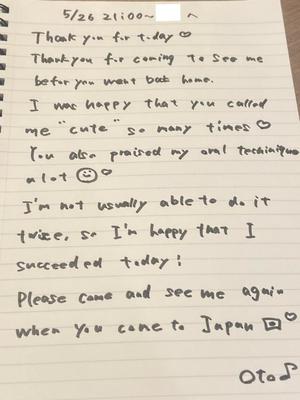 5/26 21:00~ へ
Thank you for today ♡
Thank you for coming to see me
befor you went back home.
I was happy that you called
me "cute" so many times ♡
You also praised my oral techinique
a lot ☺♡
I'm not usually able to do it
twice, so I'm happy that I
succeeded today!
Please come and see me again
when you come to Japan 🇯🇵♡
Oto♪